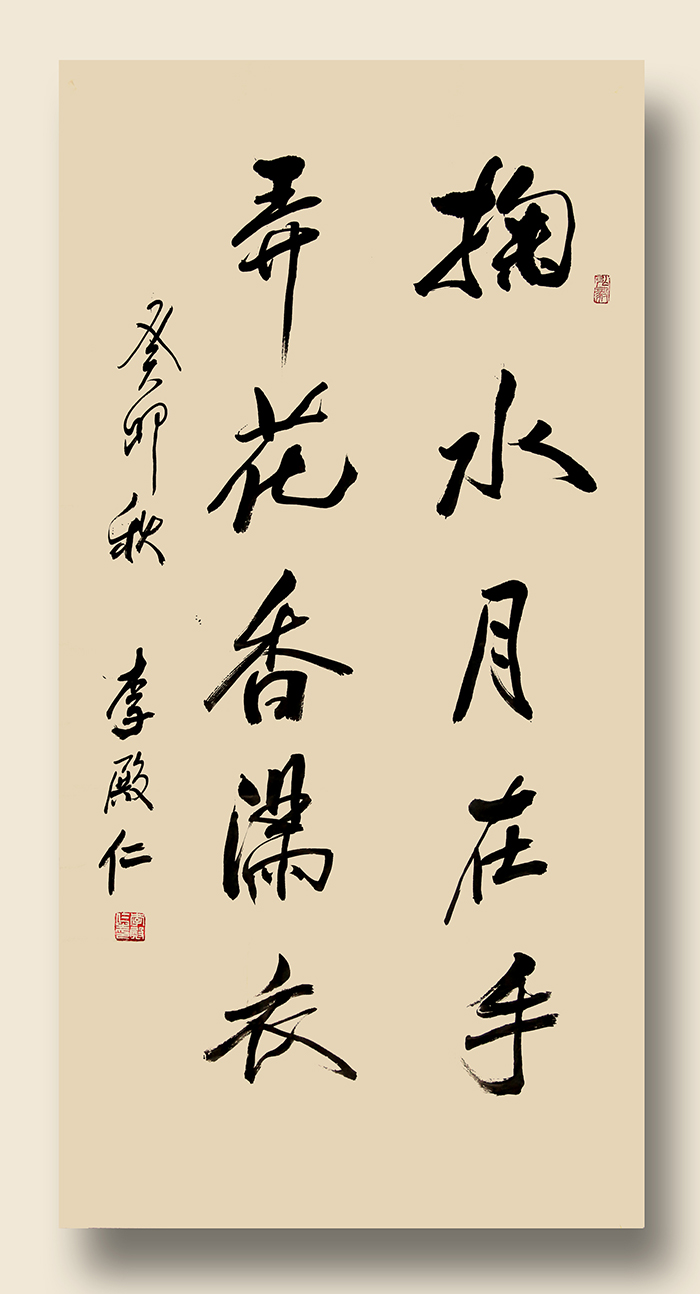 掬水月在手
弄花香滿衣
癸卯秋 李殿仁